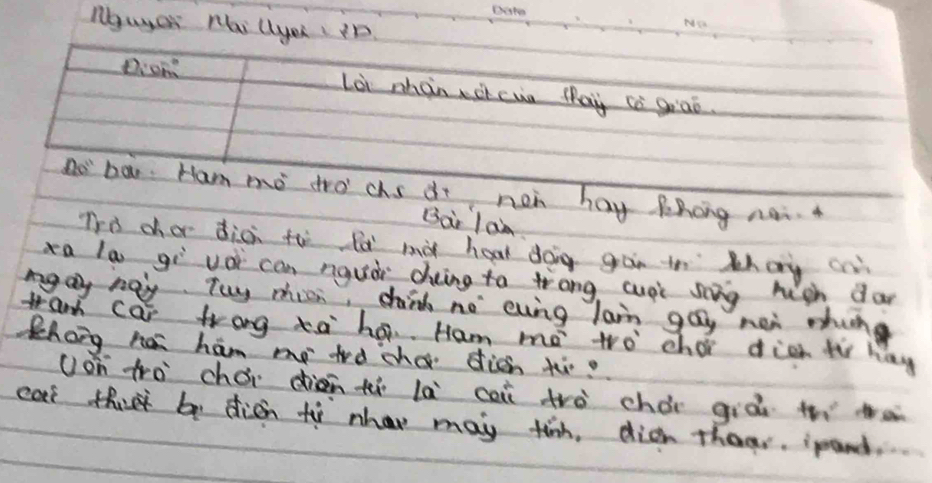 Date No
Nguyễn Mai Uyên
Điểm
Lời nhận xét của thầy cô giáo
Đề bài: Ham mê trò chs đt, nên hay không nên.
Bài làm
Trò chơi điện tử là một hoạt động giải trí không còn
xa lạ gì với con người chúng ta trong cuộc sống hiện đại
ngày nay. Tuy nhiên, chính nó cũng làm gây nên những
tranh cãi trong xã hội. Ham mê trò chơi điện tử hay
không nên ham mê trò chơi điện tử?
Vốn trò chơi điện tử là cái trò chơi giải trí trên
các thiết bị điện tử như máy tính, điện thoại, ipand....